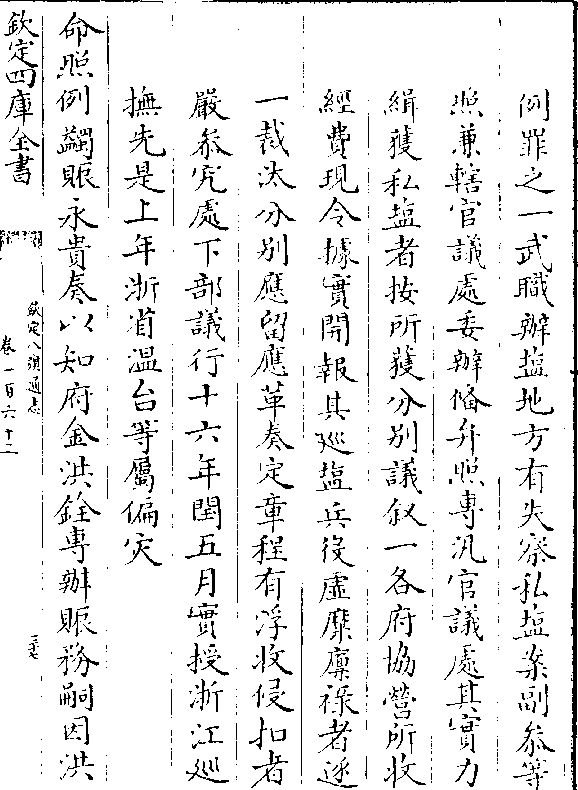 例罪之一武職辦塩地方有失察私塩案副叅等
照兼轄官議處委辦偹弁照專汛官議處其實力
緝獲私塩者按所獲分别議叙一各府協營所收
經費現令據實開報其廵塩兵役虚糜廩禄者逐
一裁汰分别應留應革奏定章程有浮收侵扣者
嚴叅究處下部議行十六年閏五月實授浙江廵
撫先是上年浙省溫台等屬偏灾
命照例蠲賑永貴奏以知府金洪銓專辦賑務嗣因洪
欽定四庫全書
欽定八旗通志
卷一百六十二
三十七